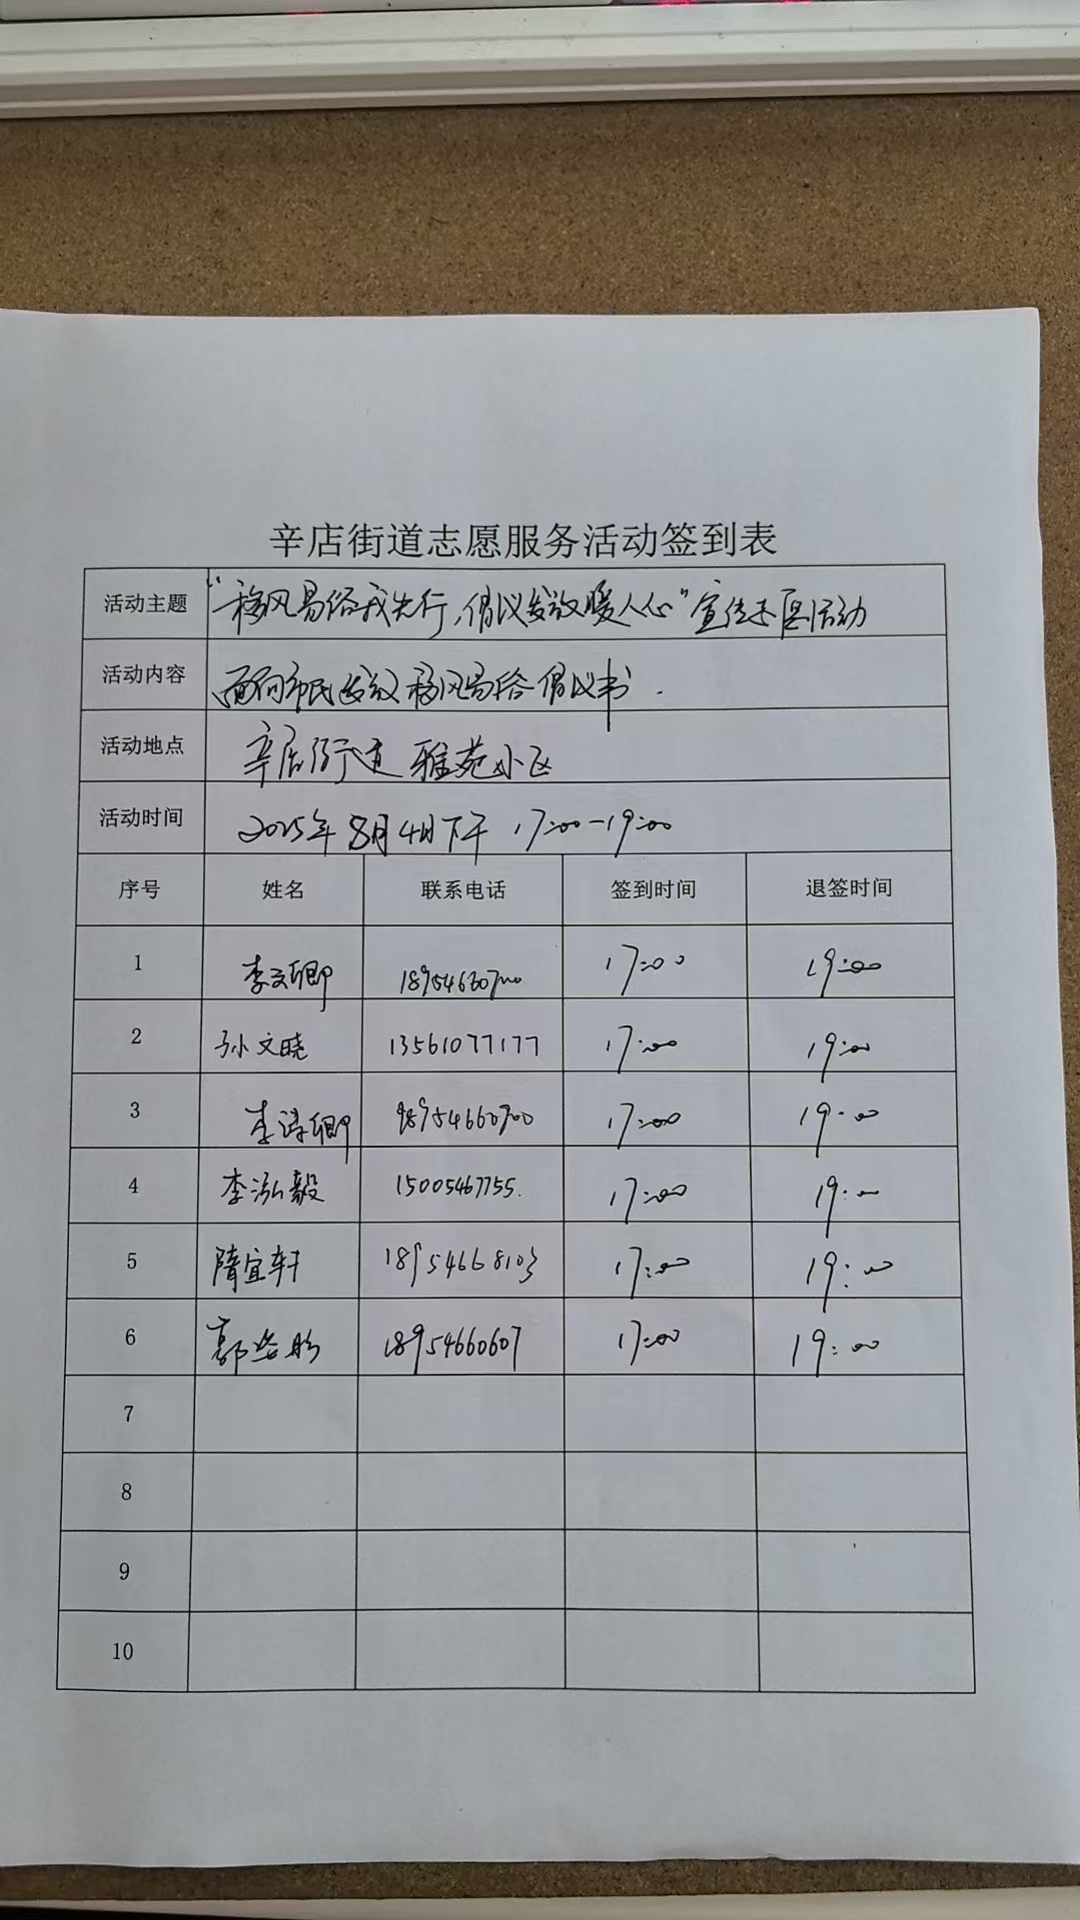 辛店街道志愿服务活动签到表
活动主题 "移风易俗我先行,倡议发放暖人心"宣传志愿活动
活动内容 面向市民发放移风易俗倡议书.
活动地点 辛店街道 雅苑小区
活动时间 2025年8月4日下午 17:00-19:00
序号 姓名 联系电话 签到时间 退签时间
1 李文卿 17:00 19:00
2 孙文晓 13561077177 17:00 19:00
3 李涛卿 18954660900 17:00 19:00
4 李泓毅 15005467755. 17:00 19:00
5 隋宜轩 18954668103 17:00 19:00
6 郭 18954660607 17:00 19:00
7
8
9
10